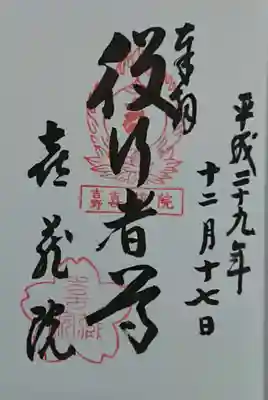 平成二十九年
十二月十七日
奉拝
役行者尊
喜蔵院
吉野 喜蔵院